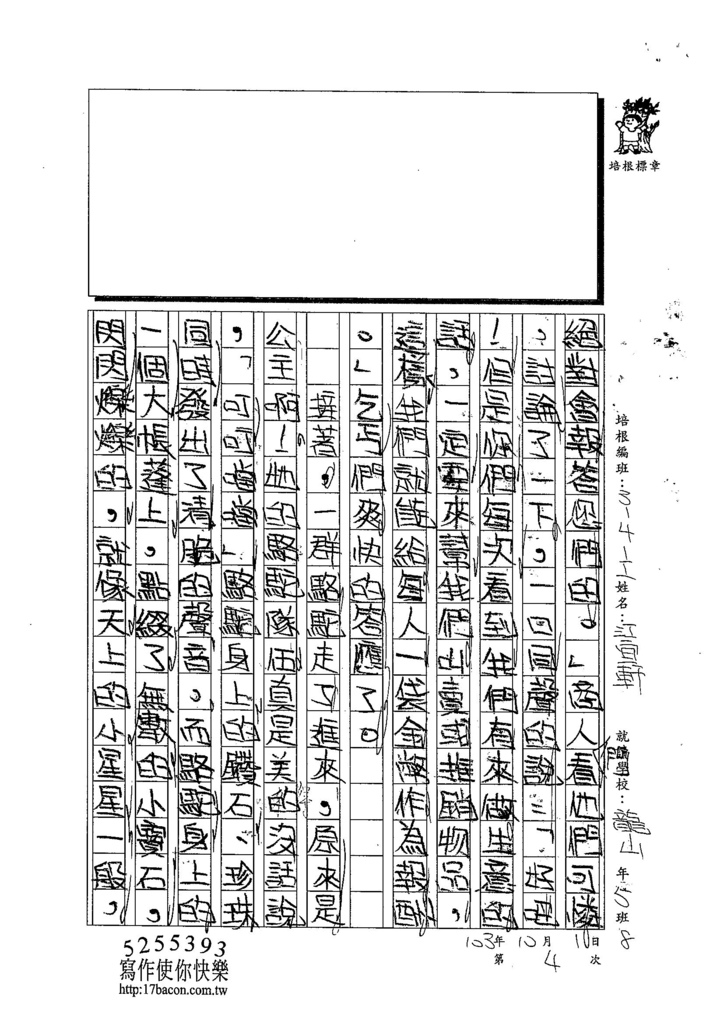 培根標章
培根編班：3-4-I 姓名：江宜軒 就讀學校：龍山 年5班8
103年10月1日
第4次
絕對會報答您們的。」商人看他們可憐
，討論了一下，一口同聲的說：「好吧
！但是你們每次看到我們有來做生意的
話，一定要來幫我們出賣或推銷物品，
這樣我們就能給每人一袋金幣作為報酬
。」乞丐們爽快的答應了。
接著，一群駱駝走了進來，原來是
公主啊！她的駱駝隊伍真是美的沒話說
，「叮叮噹噹」駱駝身上的鑽石、珍珠
同時發出了清脆的聲音。而駱駝身上的
一個大帳蓬上，點綴了無數的小寶石，
閃閃爍爍的，就像天上的小星星一般，
5255393
寫作使你快樂
http:17bacon.com.tw